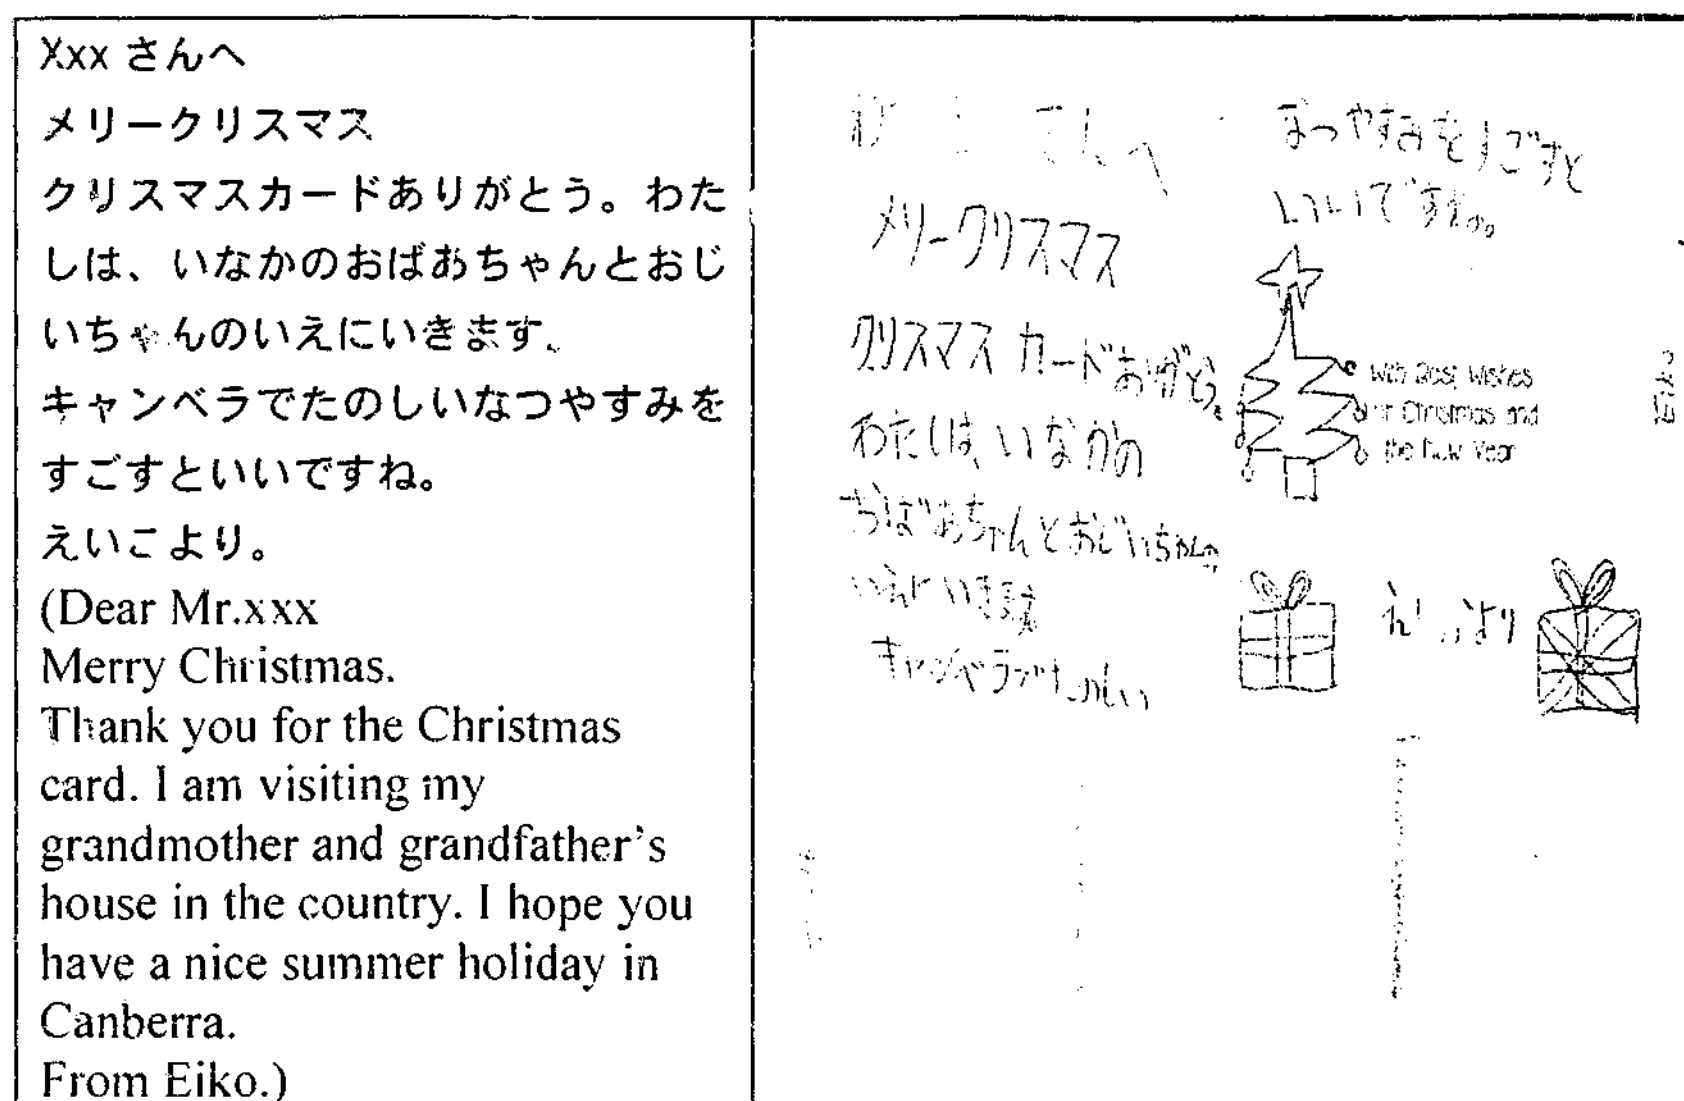 Xxx さんへ
メリークリスマス
クリスマスカードありがとう。わた
しは、いなかのおばあちゃんとおじ
いちゃんのいえにいきます。
キャンベラでたのしいなつやすみを
すごすといいですね。
えいこより。
(Dear Mr.xxx
Merry Christmas.
Thank you for the Christmas
card. I am visiting my
grandmother and grandfather's
house in the country. I hope you
have a nice summer holiday in
Canberra.
From Eiko.)
さんへ
メリークリスマス
クリスマス カードありがとう。
わたしは、いなかの
おばあちゃんとおじいちゃんの
いえにいきます
キャンベラでたのしい
なつやすみをすごすと
いいですね。
With Best Wishes
for Christmas and
the New Year
えいこより